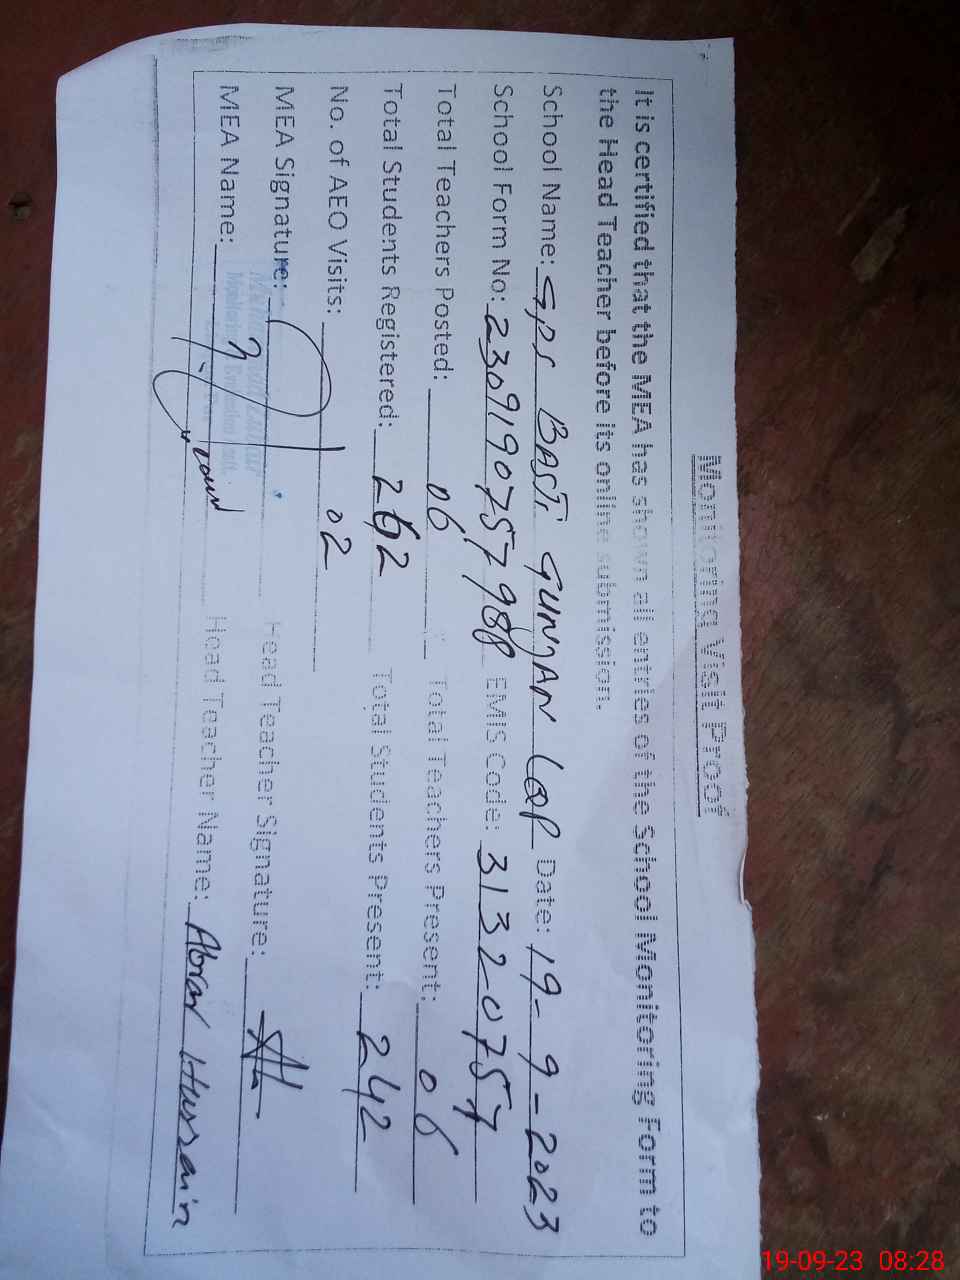 Monitoring Visit Proof
It is certified that the MEA has shown all entries of the School Monitoring Form to
the Head Teacher before its online submission.
School Name: GPS BASTI GUNJAN LQP Date: 19-9-2023
School Form No: 2309190757988 EMIS Code: 31320757
Total Teachers Posted: 06 Total Teachers Present: 06
Total Students Registered: 262 Total Students Present: 242
No. of AEO Visits: 02
MEA Signature: Head Teacher Signature:
MEA Name: Head Teacher Name: Abrar Hussain
19-09-23 08:28